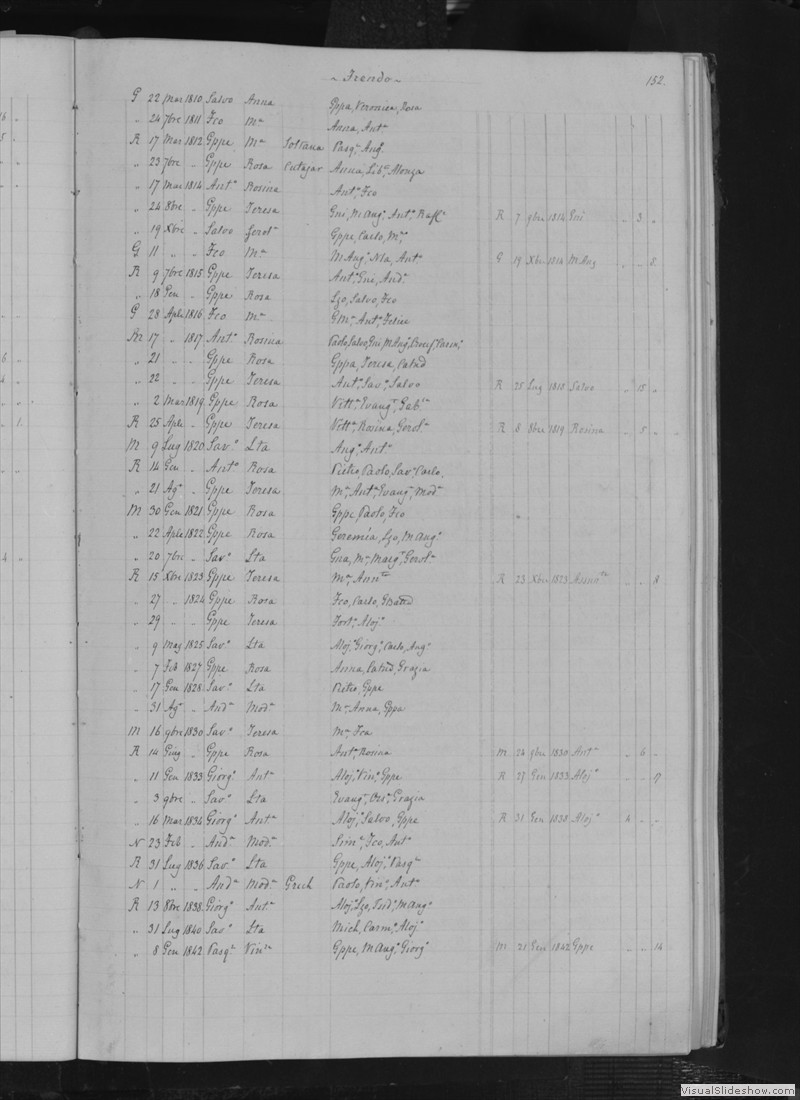 ~ Frendo ~ 152.
G 22 Mar 1810 Salvo Anna Gppa, Veronica, Rosa
„ 24 7bre 1811 Fco Mª Anna, Antª
R 17 Mar 1812 Gppe Mª Soltana Pasqª, Angª
„ 23 7bre „ Gppe Rosa Cutajar Anna, Libª, Alonza
„ 17 Mar 1814 Antº Rosina Antº, Fco
„ 24 8bre „ Gppe Teresa Gni, M Angª, Antª, Raffº R 7 9bre 1814 Gni „ 3 „
„ 19 Xbre „ Salvo Gerolª Gppe, Carlo, Mª
G 11 „ „ Fco Mª M Angª, Nla, Antª G 19 Xbre 1814 M Ang „ „ 8
R 9 7bre 1815 Gppe Teresa Antª, Gni, Andª
„ 18 Gen „ Gppe Rosa Lzo, Salvo, Fco
G 28 Aple 1816 Fco Mª G Mª, Antª, Felice
M 17 „ 1817 Antº Rosina Paolo, Salvo, Gni, M Angª
„ 21 „ „ Gppe Rosa Gppa, Teresa, Catnd
„ 22 „ „ Gppe Teresa Antª, Savª, Salvo R 25 Lug 1818 Salvo „ 15 „
„ 2 Mar 1819 Gppe Rosa Vittª, Evangª, Gabª
R 25 Aple „ Gppe Teresa Vittª, Rosina, Gerolª R 8 8bre 1819 Rosina „ 5 „
M 9 Lug 1820 Savº Lta Angº, Antº
R 14 Gen „ Antº Rosa Pietro, Paolo, Savº, Carlo,
„ 21 Agº „ Gppe Teresa Mª, Antª, Evangª, Modª
M 30 Gen 1821 Gppe Rosa Gppe, Paolo, Fco
„ 22 Aple 1822 Gppe Rosa Geremia, Lzo, M Angº
„ 20 7bre „ Savº Lta Gna, Mª, Margª, Gerolª
R 15 Xbre 1823 Gppe Teresa Mª, Annta R 23 Xbre 1823 Annta „ „ 8
„ 27 „ 1824 Gppe Rosa Fco, Carlo, GBatta
„ 29 „ „ Gppe Teresa Fortª, Alojª
„ 9 Mag 1825 Savº Lta Alojº, Giorgº, Carlo, Angº
„ 7 Feb 1827 Gppe Rosa Anna, Catnd, Grazia
„ 17 Gen 1828 Savº Lta Pietro, Gppe
„ 31 Agº „ Andª Modª Mª, Anna, Gppa
M 16 9bre 1830 Savº Teresa Mª, Fca
R 14 Giug „ Gppe Rosa Antª, Rosina M 24 9bre 1830 Antª „ 6 „
„ 11 Gen 1833 Giorgº Antª Alojº, Vinº, Gppe R 27 Gen 1833 Alojº „ „ 17
„ 3 9bre „ Savº Lta Evangª, Orsª, Grazia
„ 16 Mar 1834 Giorgº Antª Alojº, Salvo, Gppe R 31 Gen 1838 Alojº 4 „ „
N 23 Feb „ Andª Modª Fco, Antº
R 31 Lug 1836 Savº Lta Gppe, Alojº, Pasqª
N 1 „ „ Andª Modª Grech Paolo, Vinº, Antº
R 13 8bre 1838 Giorgº Antª Alojº, Lzo, M Angº
„ 31 Lug 1840 Savº Lta Mich, Carmº, Alojº
„ 8 Gen 1842 Pasqº Vinza Gppe, M Angº, Giorgº M 21 Gen 1842 Gppe „ „ 14
VisualSlideshow.com